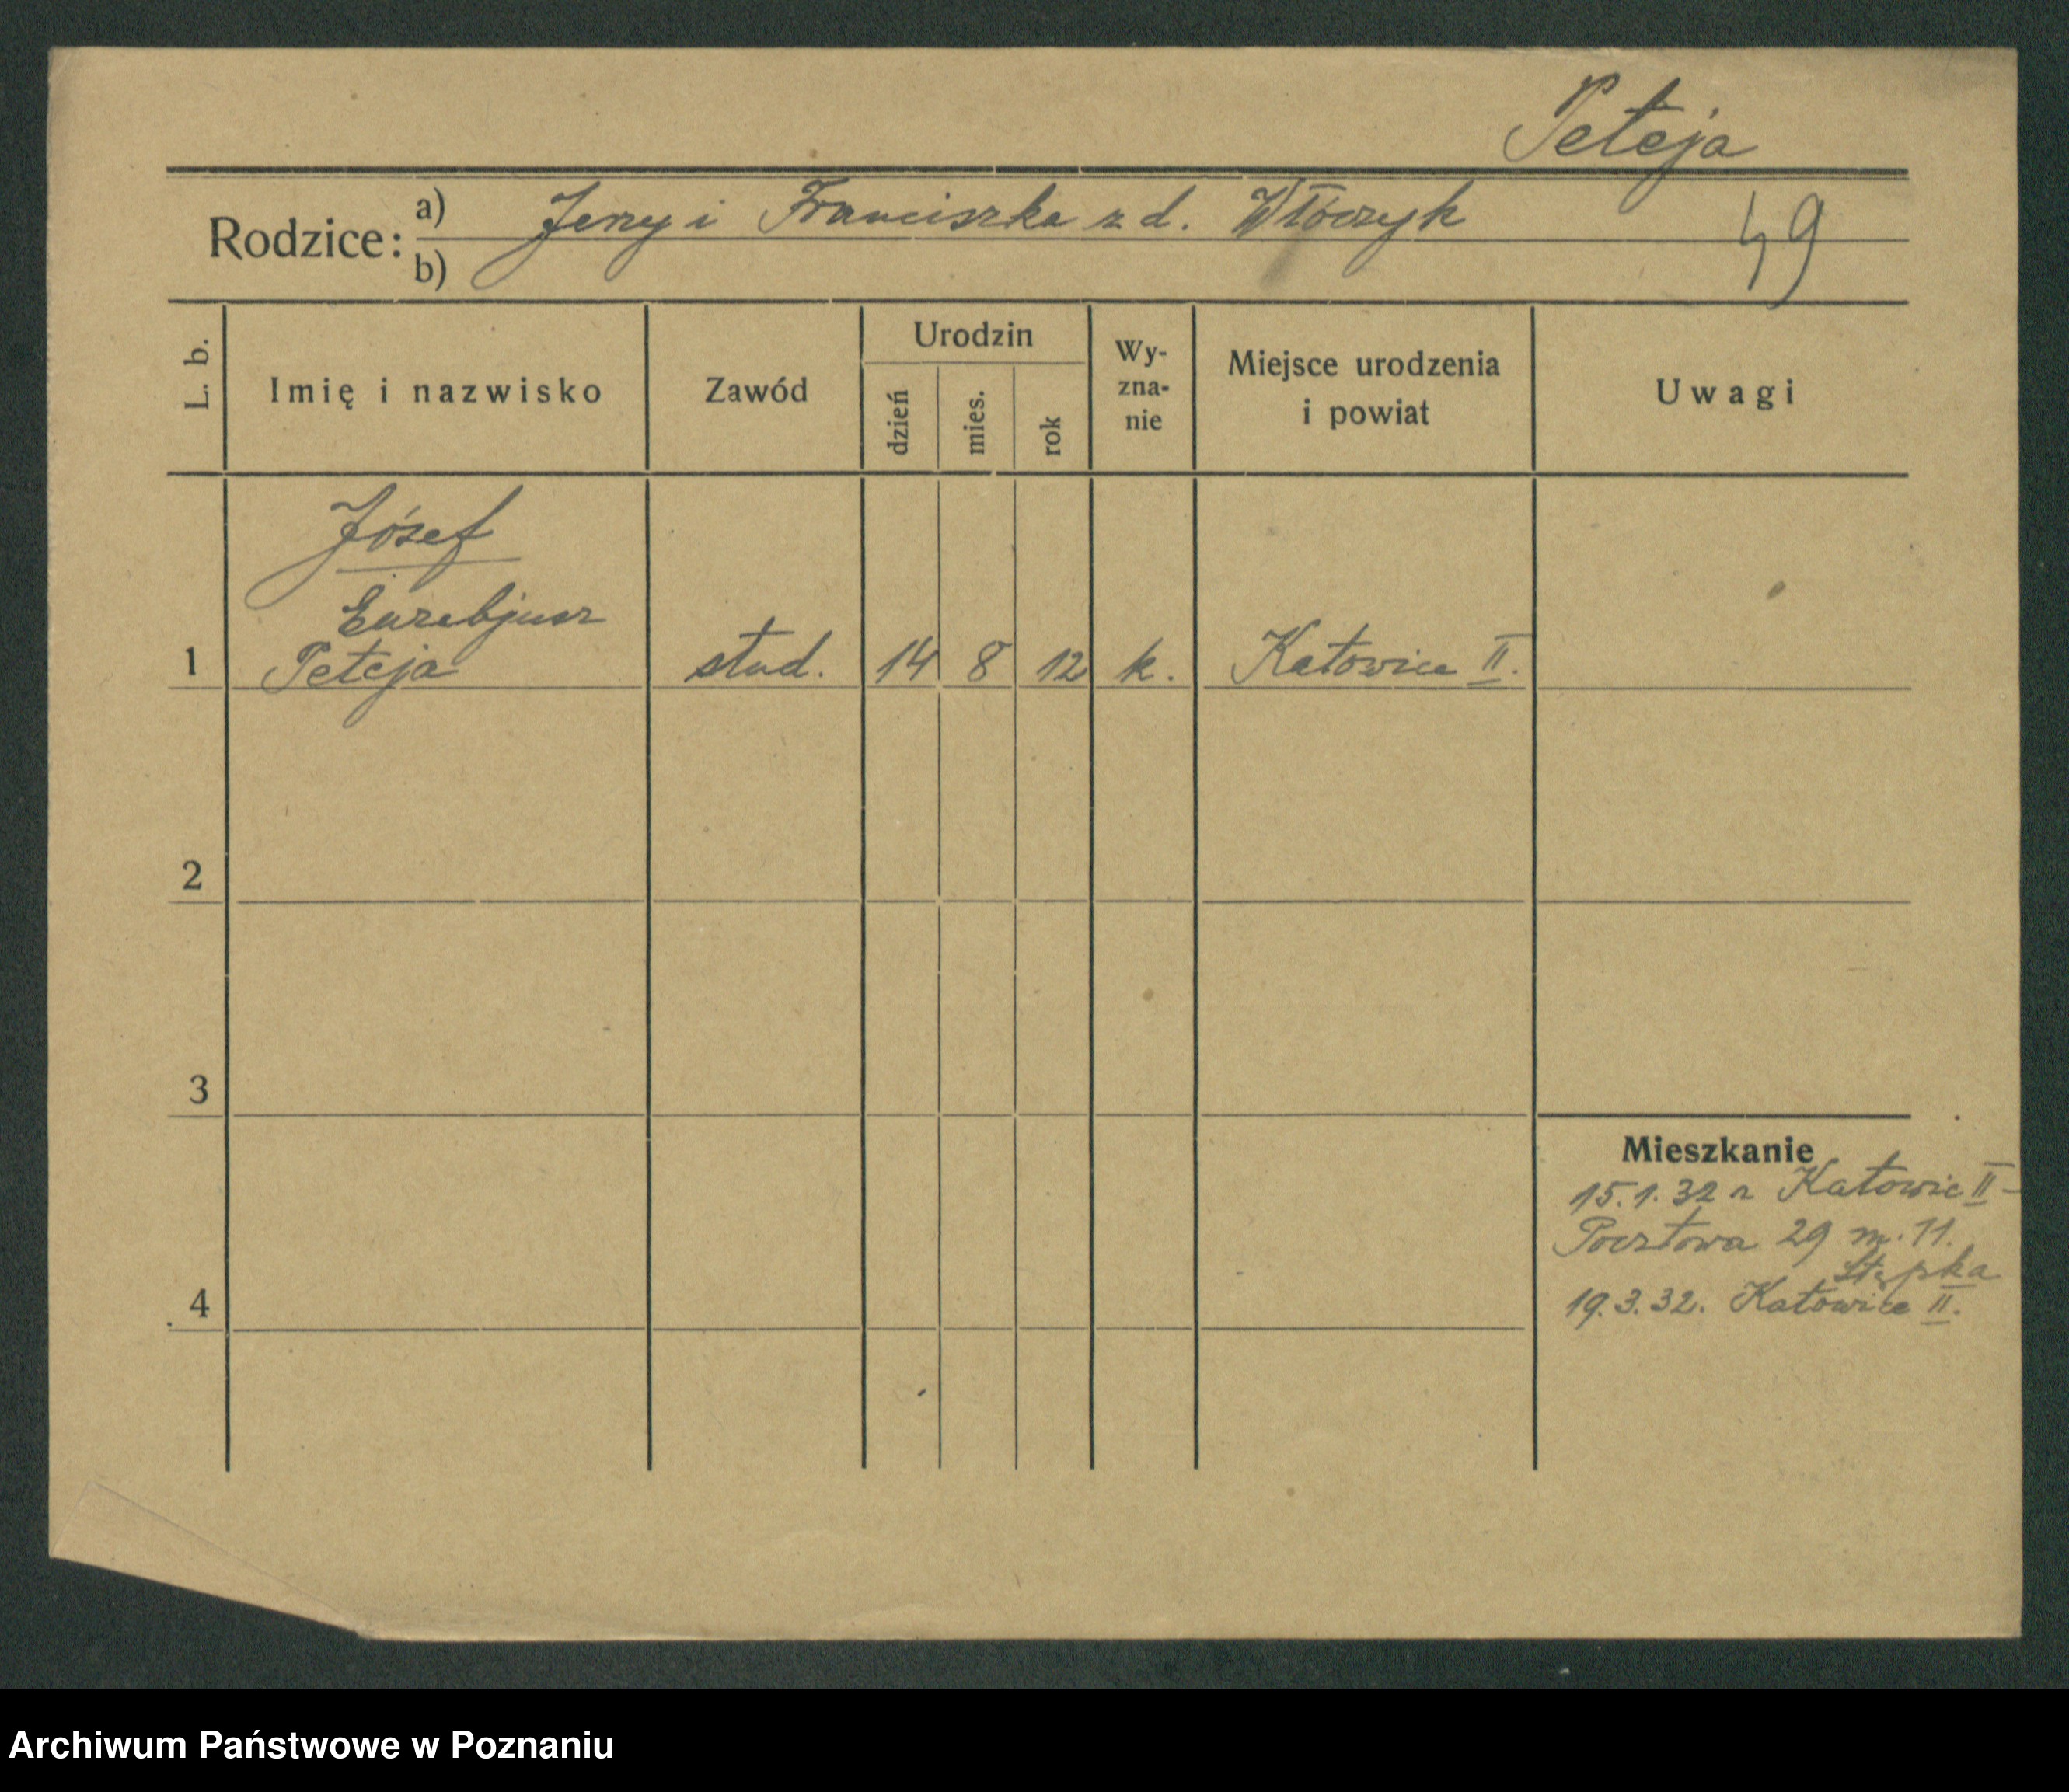 Peteja
Rodzice:
a) Jerzy i Franciszka z d. Włóczyk
49
b)
L. b.
Imię i nazwisko
Zawód
Urodzin
dzień
mies.
rok
Wy-
zna-
nie
Miejsce urodzenia
i powiat
Uwagi
Józef
Euzebjusz
1 Peteja stud. 14 8 12 k. Katowice II.
2
3
Mieszkanie
15.1.32 z Katowic II -
Pocztowa 29 m. 11.
Stępka
19.3.32. Katowice II.
4
Archiwum Państwowe w Poznaniu